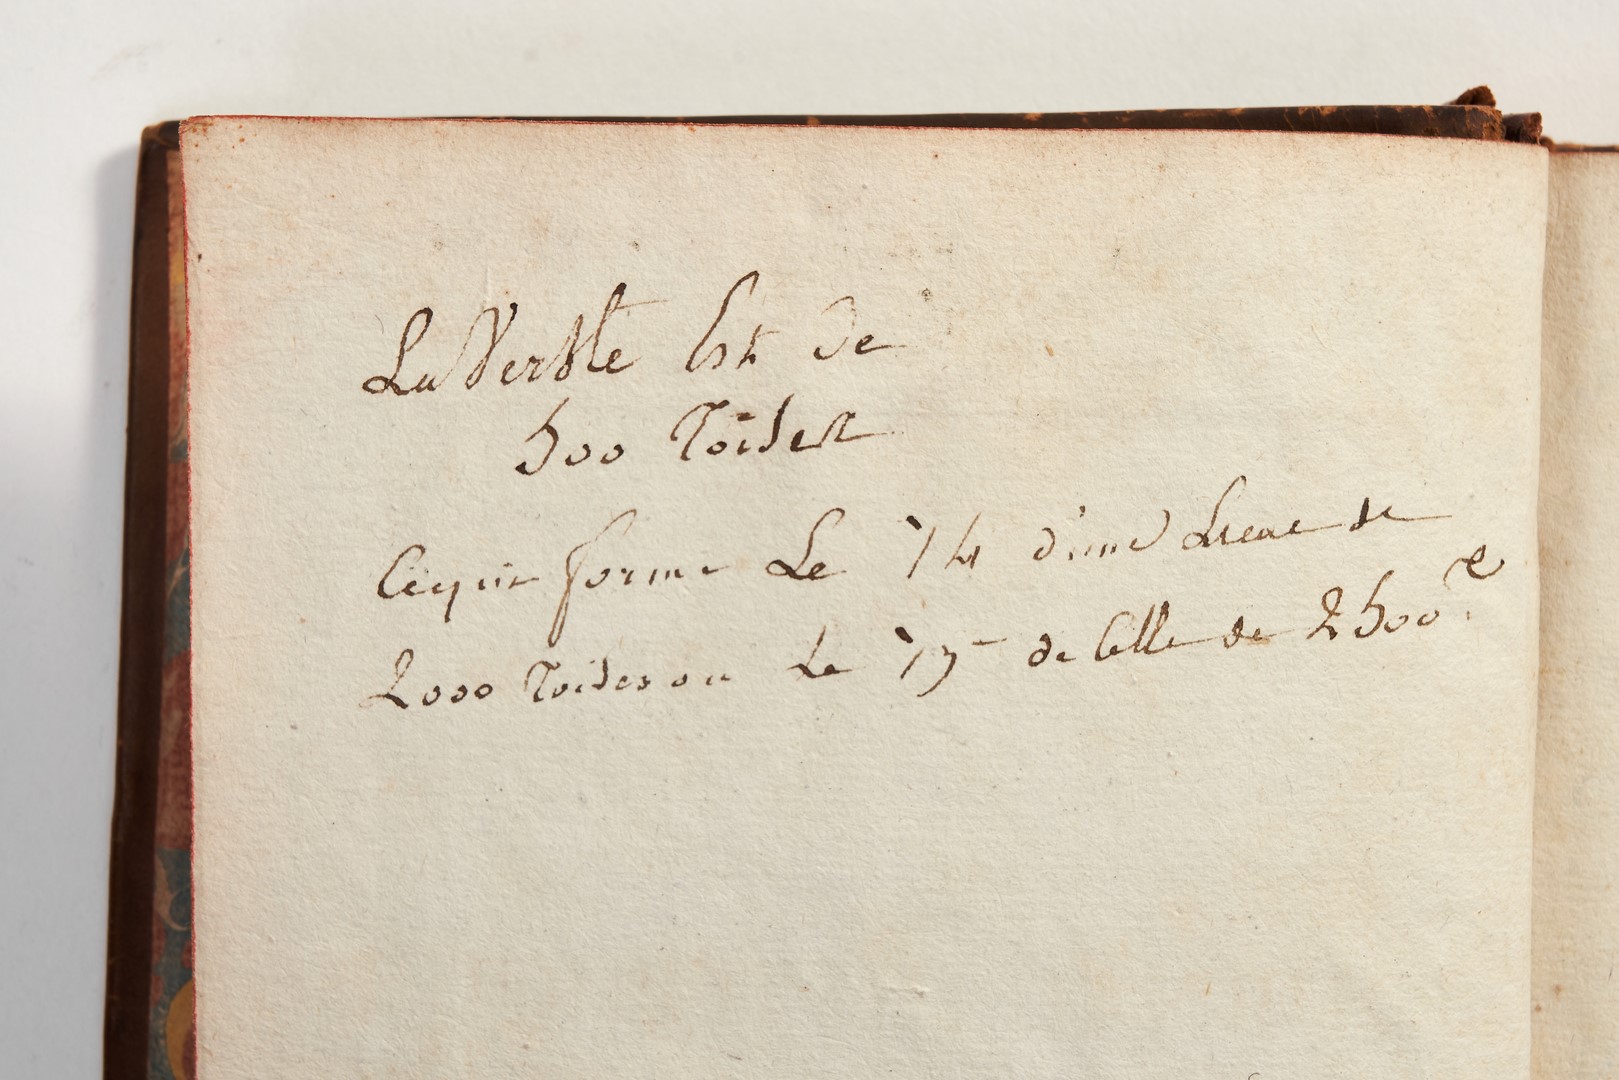 La Verste Est de
500 Toises
Cequi forme Le 1/4 d'une Lieue de
2000 Toises ou Le 1/5 de Celle de 2500